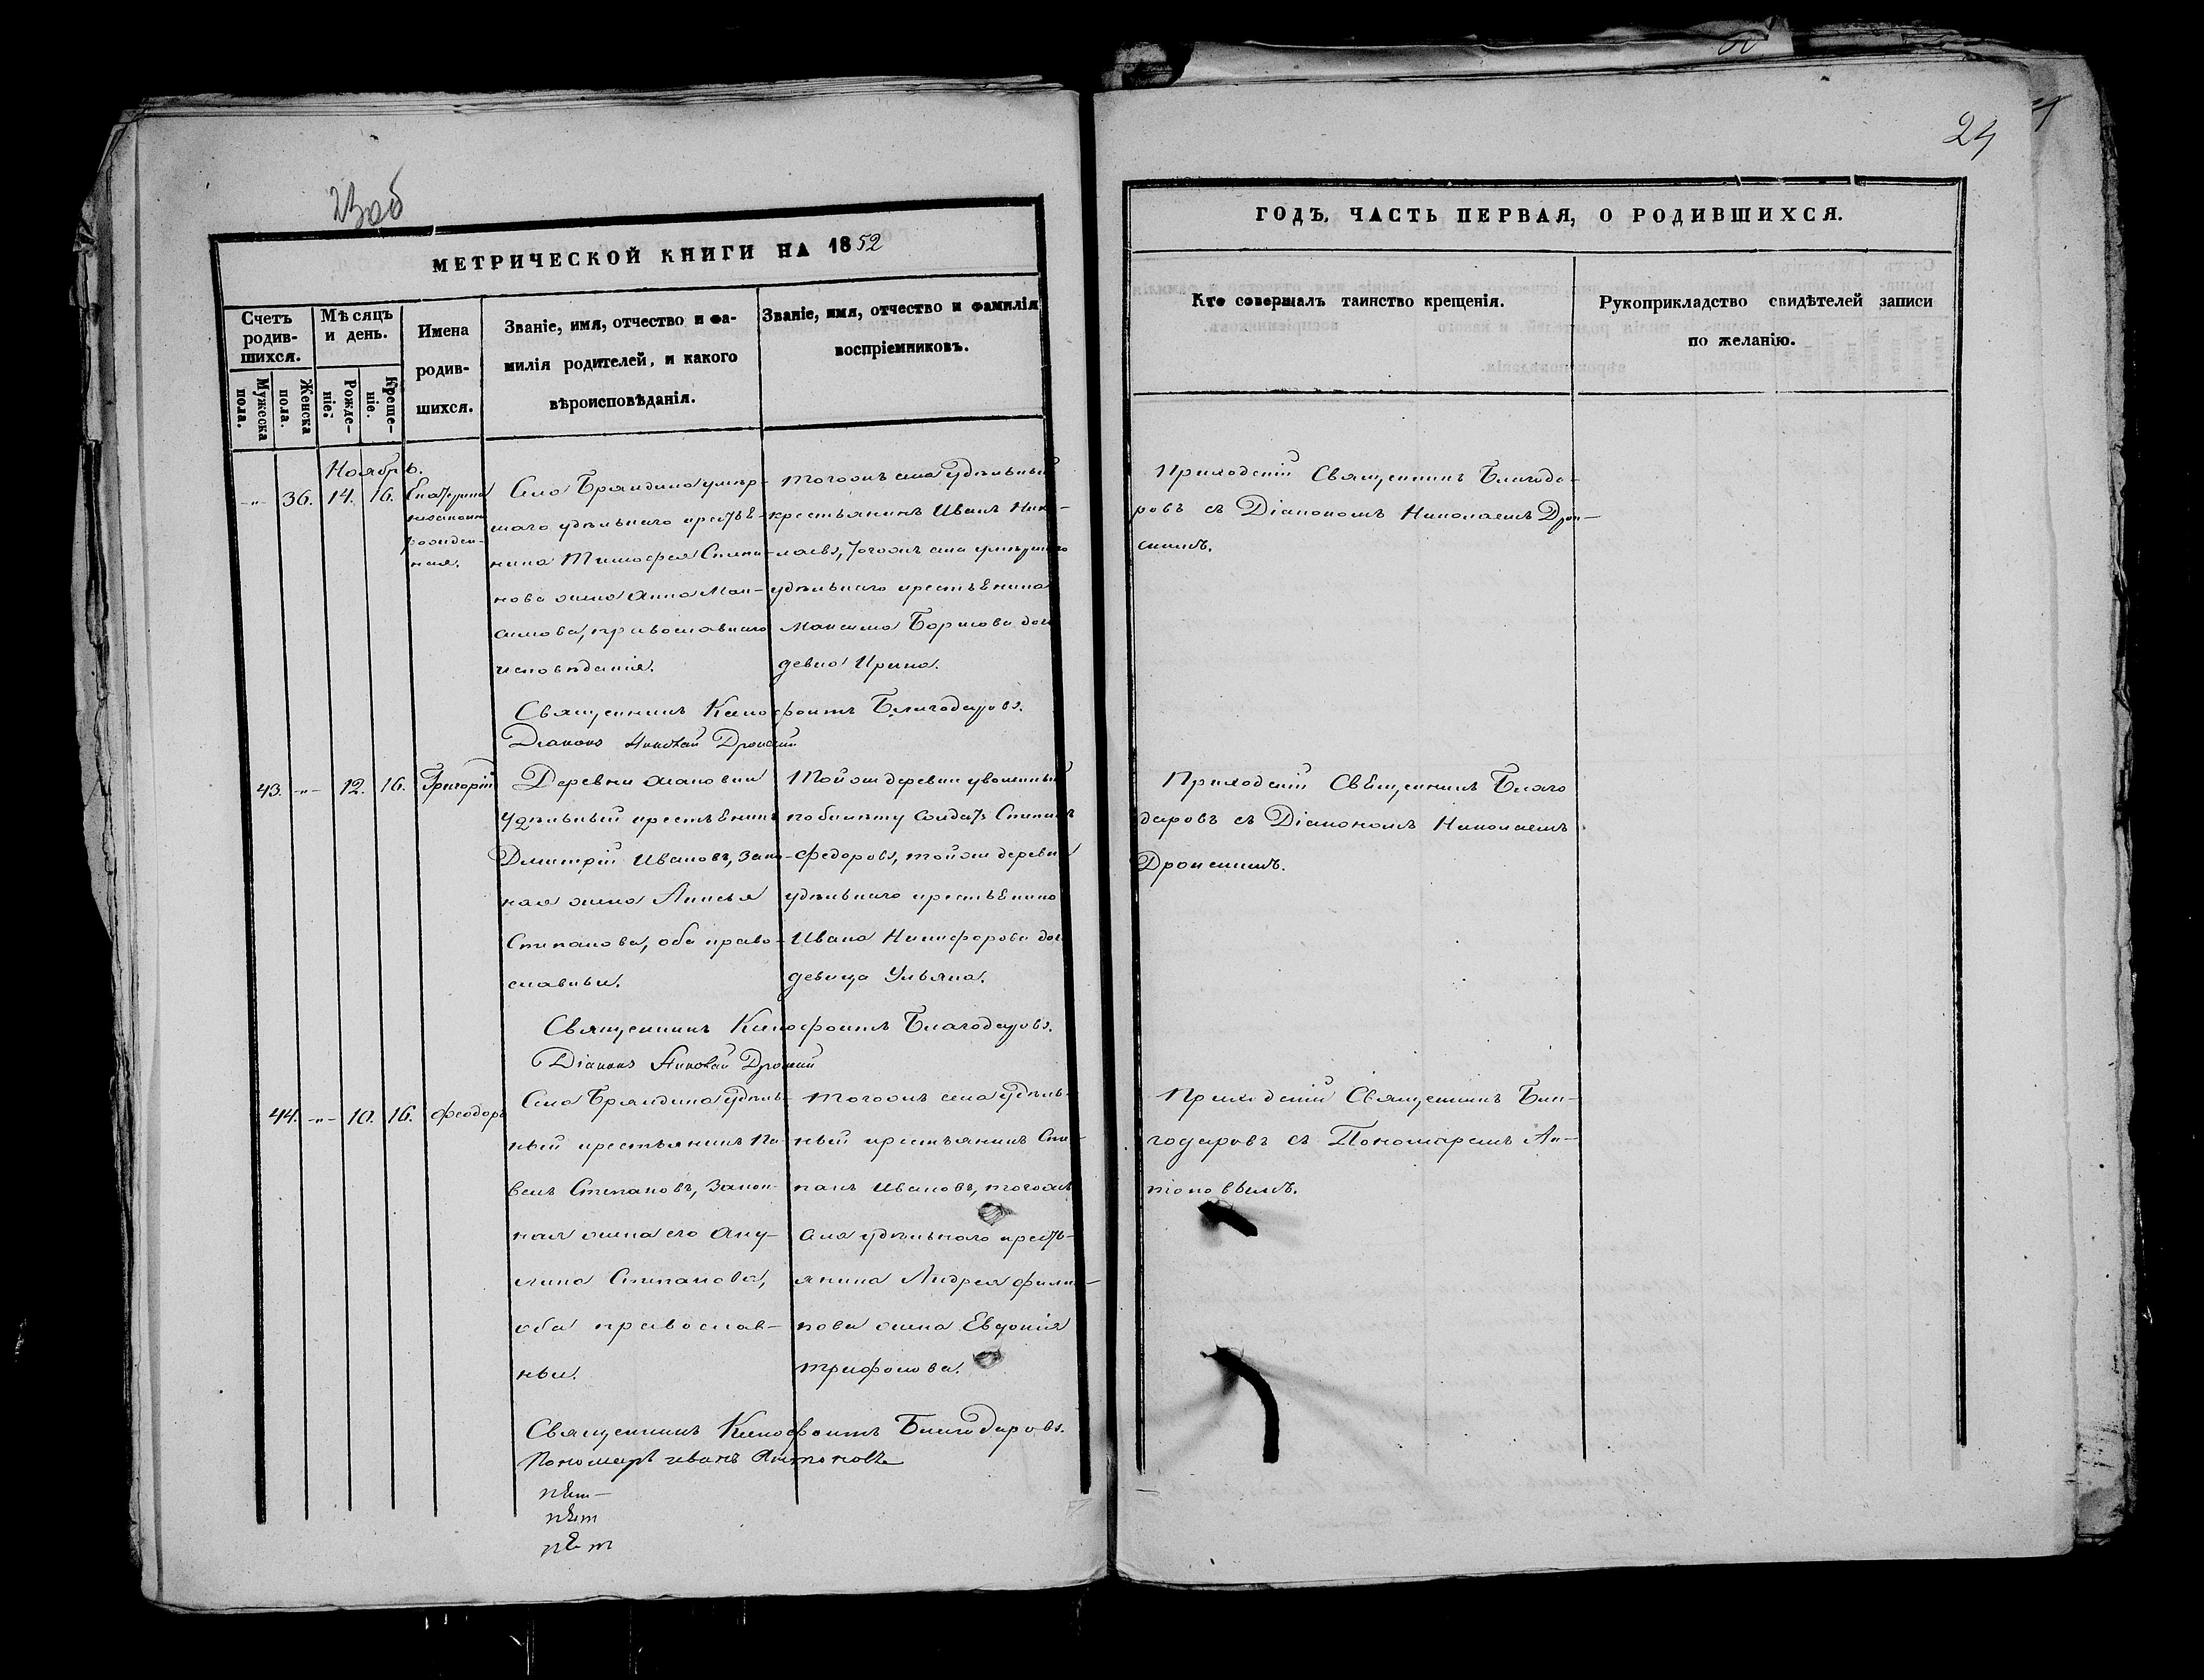 23 об
МЕТРИЧЕСКОЙ КНИГИ НА 1852
Счетъ родив-шихся.
Мужеска пола.
Женска пола.
Мѣсяцъ и день.
Рожде-ніе.
Креще-ніе.
Имена родив-шихся.
Званіе, имя, отчество и фа-
милія родителей, и какого
вѣроисповѣданія.
Званіе, имя, отчество и фамилія
воспріемниковъ.
Ноябрь.
-„- 36. 14. 16. Екатерина
незаконно
рожден-
ная.
Села Бряндина умер-
шаго удѣльнаго кресть-
нина Тимофея Степа-
нова жена Анна Мак-
симова, православнаго
исповѣданія.
Тогожъ села удѣльный
крестьянинъ Иванъ Нико-
лаевъ, тогожъ села умершаго
удѣльнаго крестьянина
Максима Борисова дочь
девка Ирина.
Священникъ Ксенофонтъ Благодаровъ.
Діаконъ Николай Дронскій
43. -„- 12. 16. Григорій
Деревни
Удѣльный крестьянинъ
Дмитрій Ивановъ, закон-
ная жена Анисья
Степанова, оба право-
славные.
Той же деревни уволенный
по билету солдатъ Степанъ
Федоровъ, той же деревни
удѣльнаго крестьянина
Ивана Никифорова дочь
девица Ульяна.
Священникъ Ксенофонтъ Благодаровъ.
Діаконъ Николай Дронскій
44. -„- 10. 16. Феодоръ
Села Бряндина удѣль-
ный крестьянинъ Па-
велъ Степановъ, закон-
ная жена его Аку-
лина Степанова,
оба православ-
ные.
Тогожъ села удѣль-
ный крестьянинъ Сте-
панъ Ивановъ, тогожъ
села удѣльнаго кресть-
янина Андрея Филип-
пова жена Евдокія
Трифонова.
Священникъ Ксенофонтъ Благодаровъ.
Пономарь иванъ Антоновъ
нѣт
нѣт
нѣт
24
ГОДЪ, ЧАСТЬ ПЕРВАЯ, О РОДИВШИХСЯ.
Кто совершалъ таинство крещенія.
Рукоприкладство свидѣтелей записи
по желанію.
Приходскій Священникъ Благода-
ровъ съ Діакономъ Николаемъ Дрон-
скимъ.
Приходскій Священникъ Благо
даровъ съ Діакономъ Николаемъ
Дронскимъ.
Приходскій Священникъ Бла-
годаровъ съ Пономаремъ Ан-
тоновымъ.